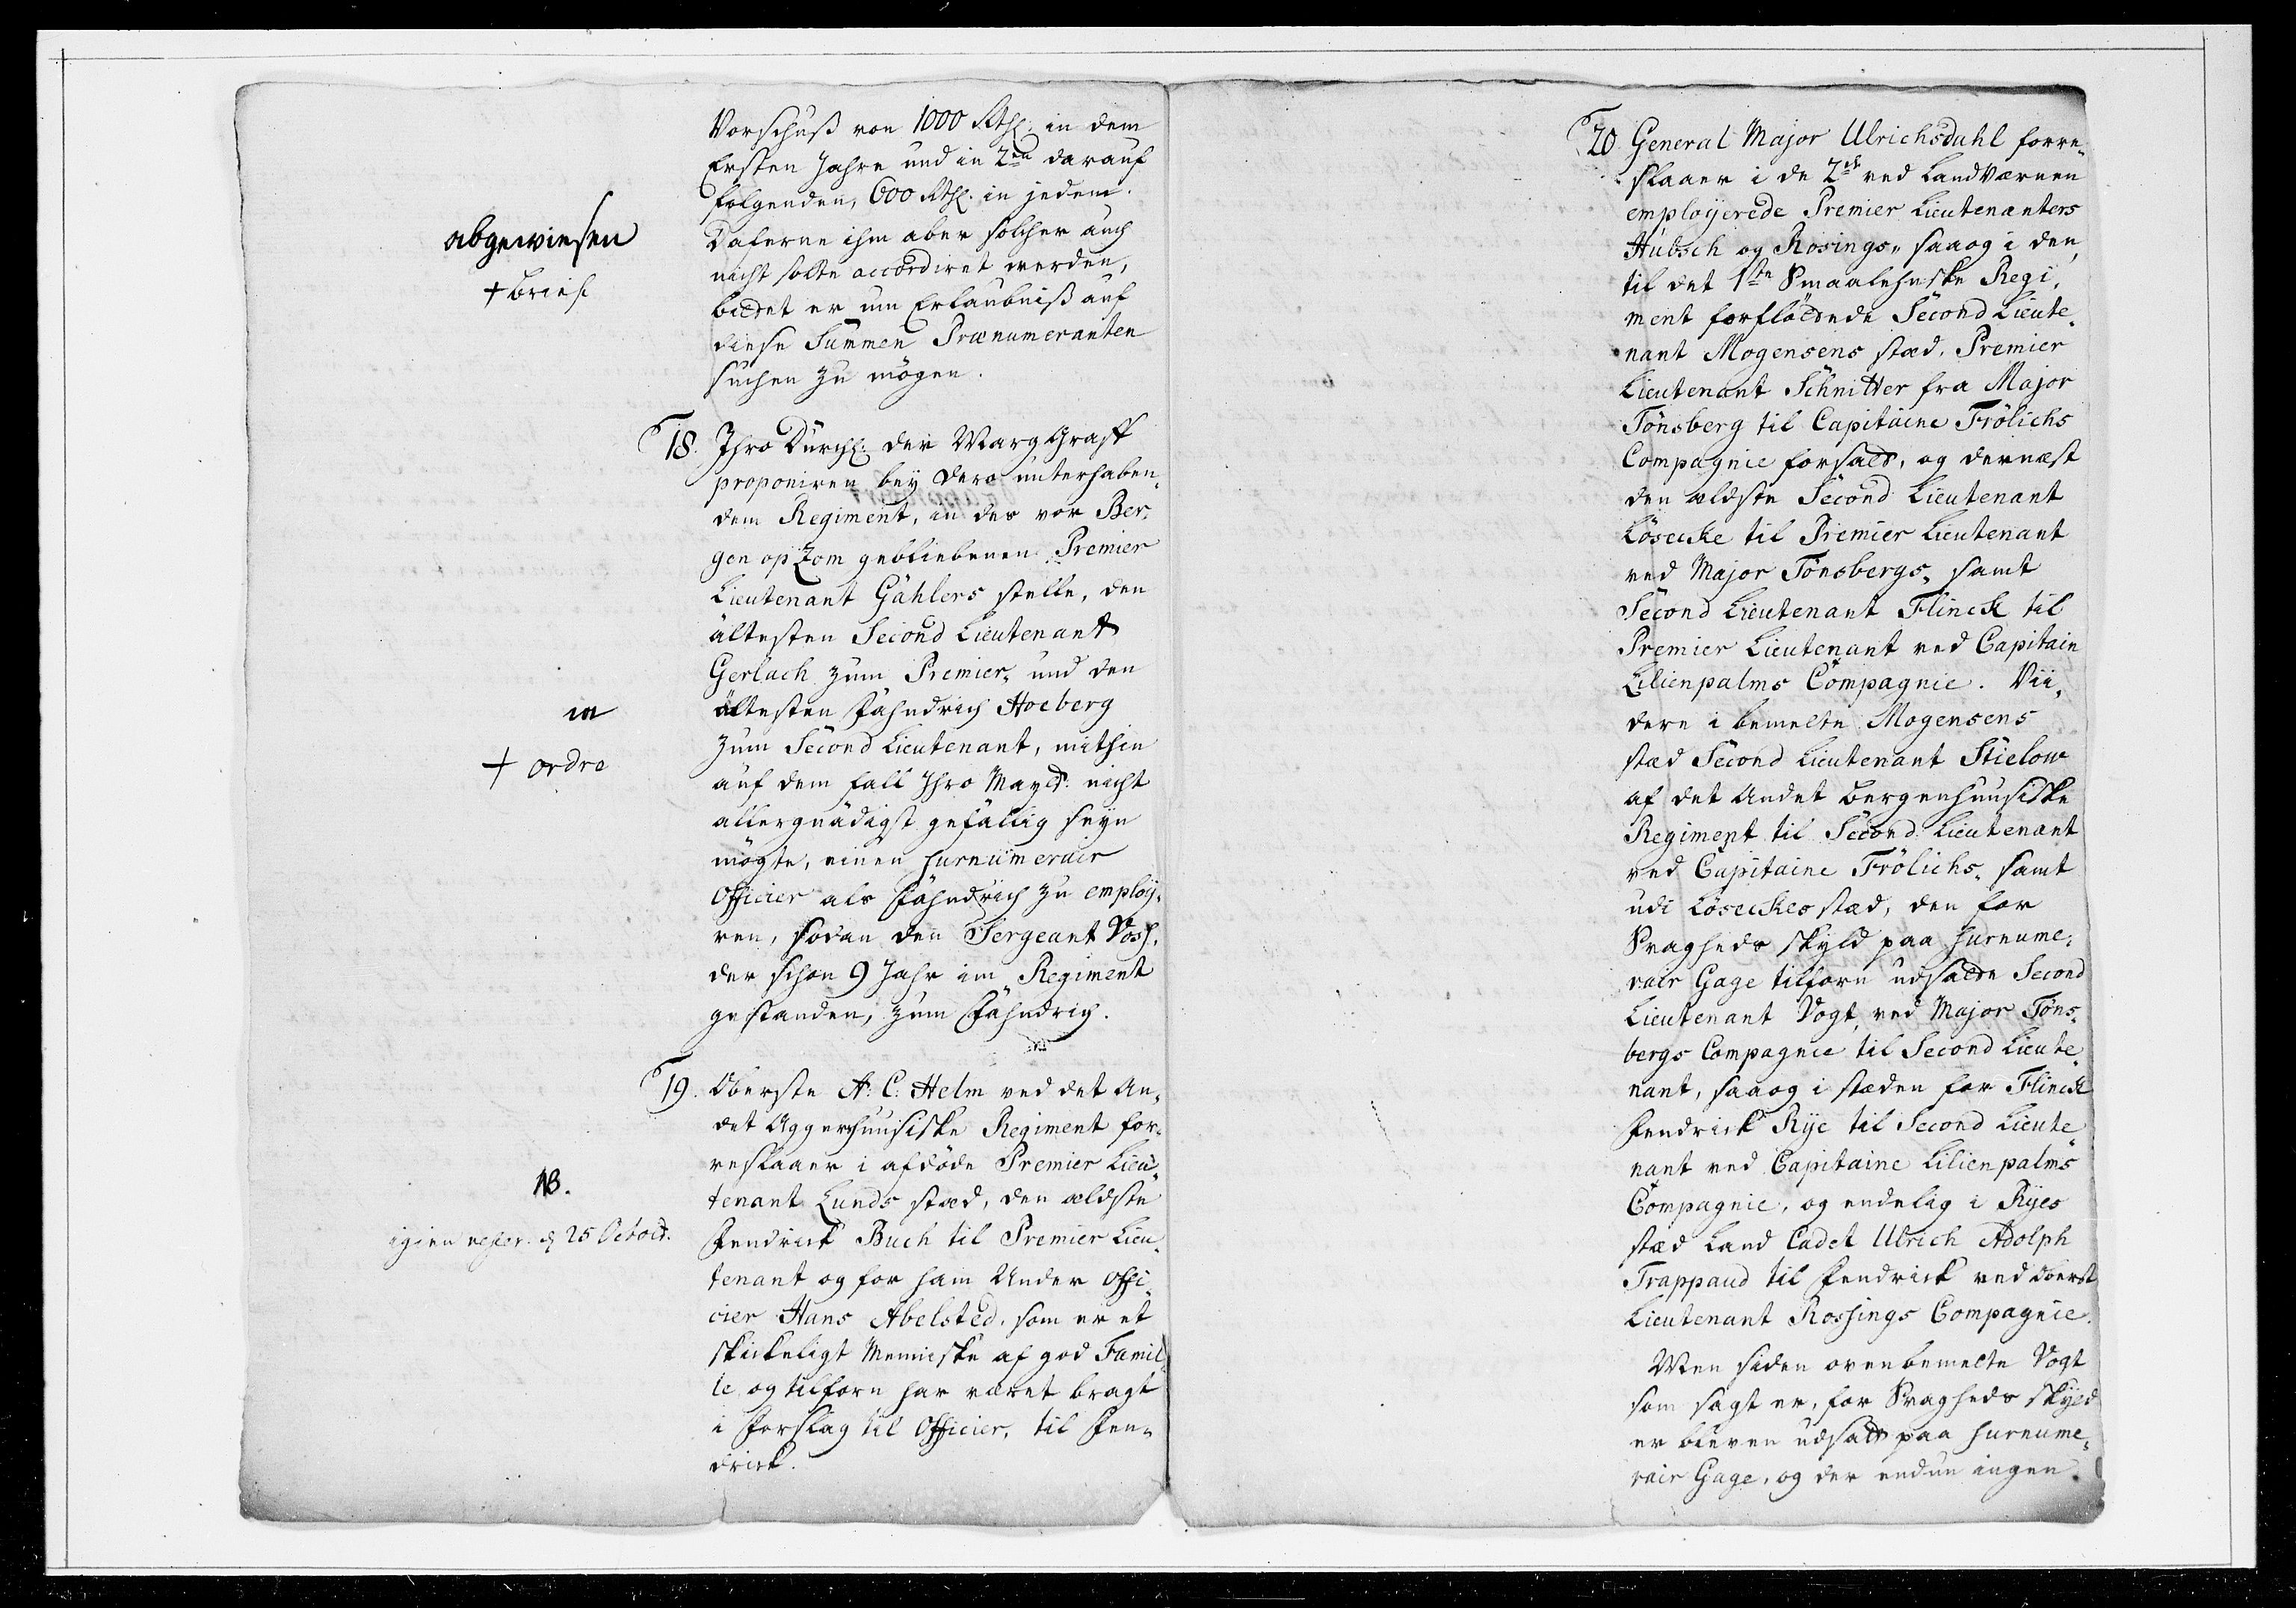 Vorschuß von 1000 Rthl. in dem
Ersten Jahre und in 2en darauf
folgenden, 600 Rthl. in jedem.
Daferne ihm aber solcher auch
nicht solte accordiret werden,
bietet er um Erlaubniß auf
diese Summen Prænumeranten
suchen zu mögen.
abgewiesen
+ brief
18. Ihro Durchl. der Marg Graff
proponiren bey dero unterhaben-
dem Regiment, in des vor Ber-
gen op Zom gebliebenen Premier
Lieutenant Gählers stelle, den
ältesten Second Lieutenant
Gerlach zum Premier- und den
ältesten Fähndrich Hoeberg
zum Second Lieutenant, mithin
auf dem fall Ihro Maytt. nicht
allergnädigst gefällig seyn
mögte, einen surnumerair
Officier als Fähndrich zu employ-
ren, sodan den Sergeant Voss,
der schon 9 Jahr im Regiment
gestanden, zum Fähndrich.
in
+ ordre
19. Oberste A: C: Helm ved det An-
det Aggershuusiske Regiment for-
reslaaer i afdöde Premier Lieu-
tenant Lunds stæd, den ældste
Fendrick Buch til Premier Lieu-
tenant og for ham Under Offi-
cier Hans Abelsted, som er et
skickeligt Menniske af god Famil-
le og tilforn har været bragt
i Forslag til Officier, til Fen-
drick.
NB.
igien refer. d 25 Octobr.
20 General Major Ulrichsdahl forre-
slaaer i de 2de ved Land Værnen
employerede Premier Lieutenanters
Hübsch og Rosings, saa og i den
til det 1ste Smaalehnske Regi-
ment forflöttede Second Lieute-
nant Mogensens stæd, Premier
Lieutenant Schnitter fra Major
Tönsberg til Capitaine Frölichs
Compagnie forsatt, og dernæst
den ældste Second Lieutenant
Lösecke til Premier Lieutenant
ved Major Tönsbergs, samt
Second Lieutenant Flinck til
Premier Lieutenant ved Capitain
Lilienpalms Compagnie. Vii-
dere i bemelte Mogensens
stæd Second Lieutenant Stielow
af det Andet Bergenhuusiske
Regiment til Second Lieutenant
ved Capitaine Frölichs, samt
udi Löseckes stæd, den for
Svagheds skyld paa surnume-
rair Gage tilforn udsatte Second
Lieutenant Vogt, ved Major Töns-
bergs Compagnie til Second Lieute-
nant, saa og i stæden for Flinck
Fendrick Rye til Second Lieute-
nant ved Capitaine Lilienpalms
Compagnie, og endelig i Ryes
stæd Land Cadet Ulrich Adolph
Trappaud til Fendrick ved Oberst
Lieutenant Rossings Compagnie.
Men siden ovenbemelte Vogt
som sagt er, for Svagheds skyld
er bleven udsatt paa surnume-
rair Gage, og der endnu ingen